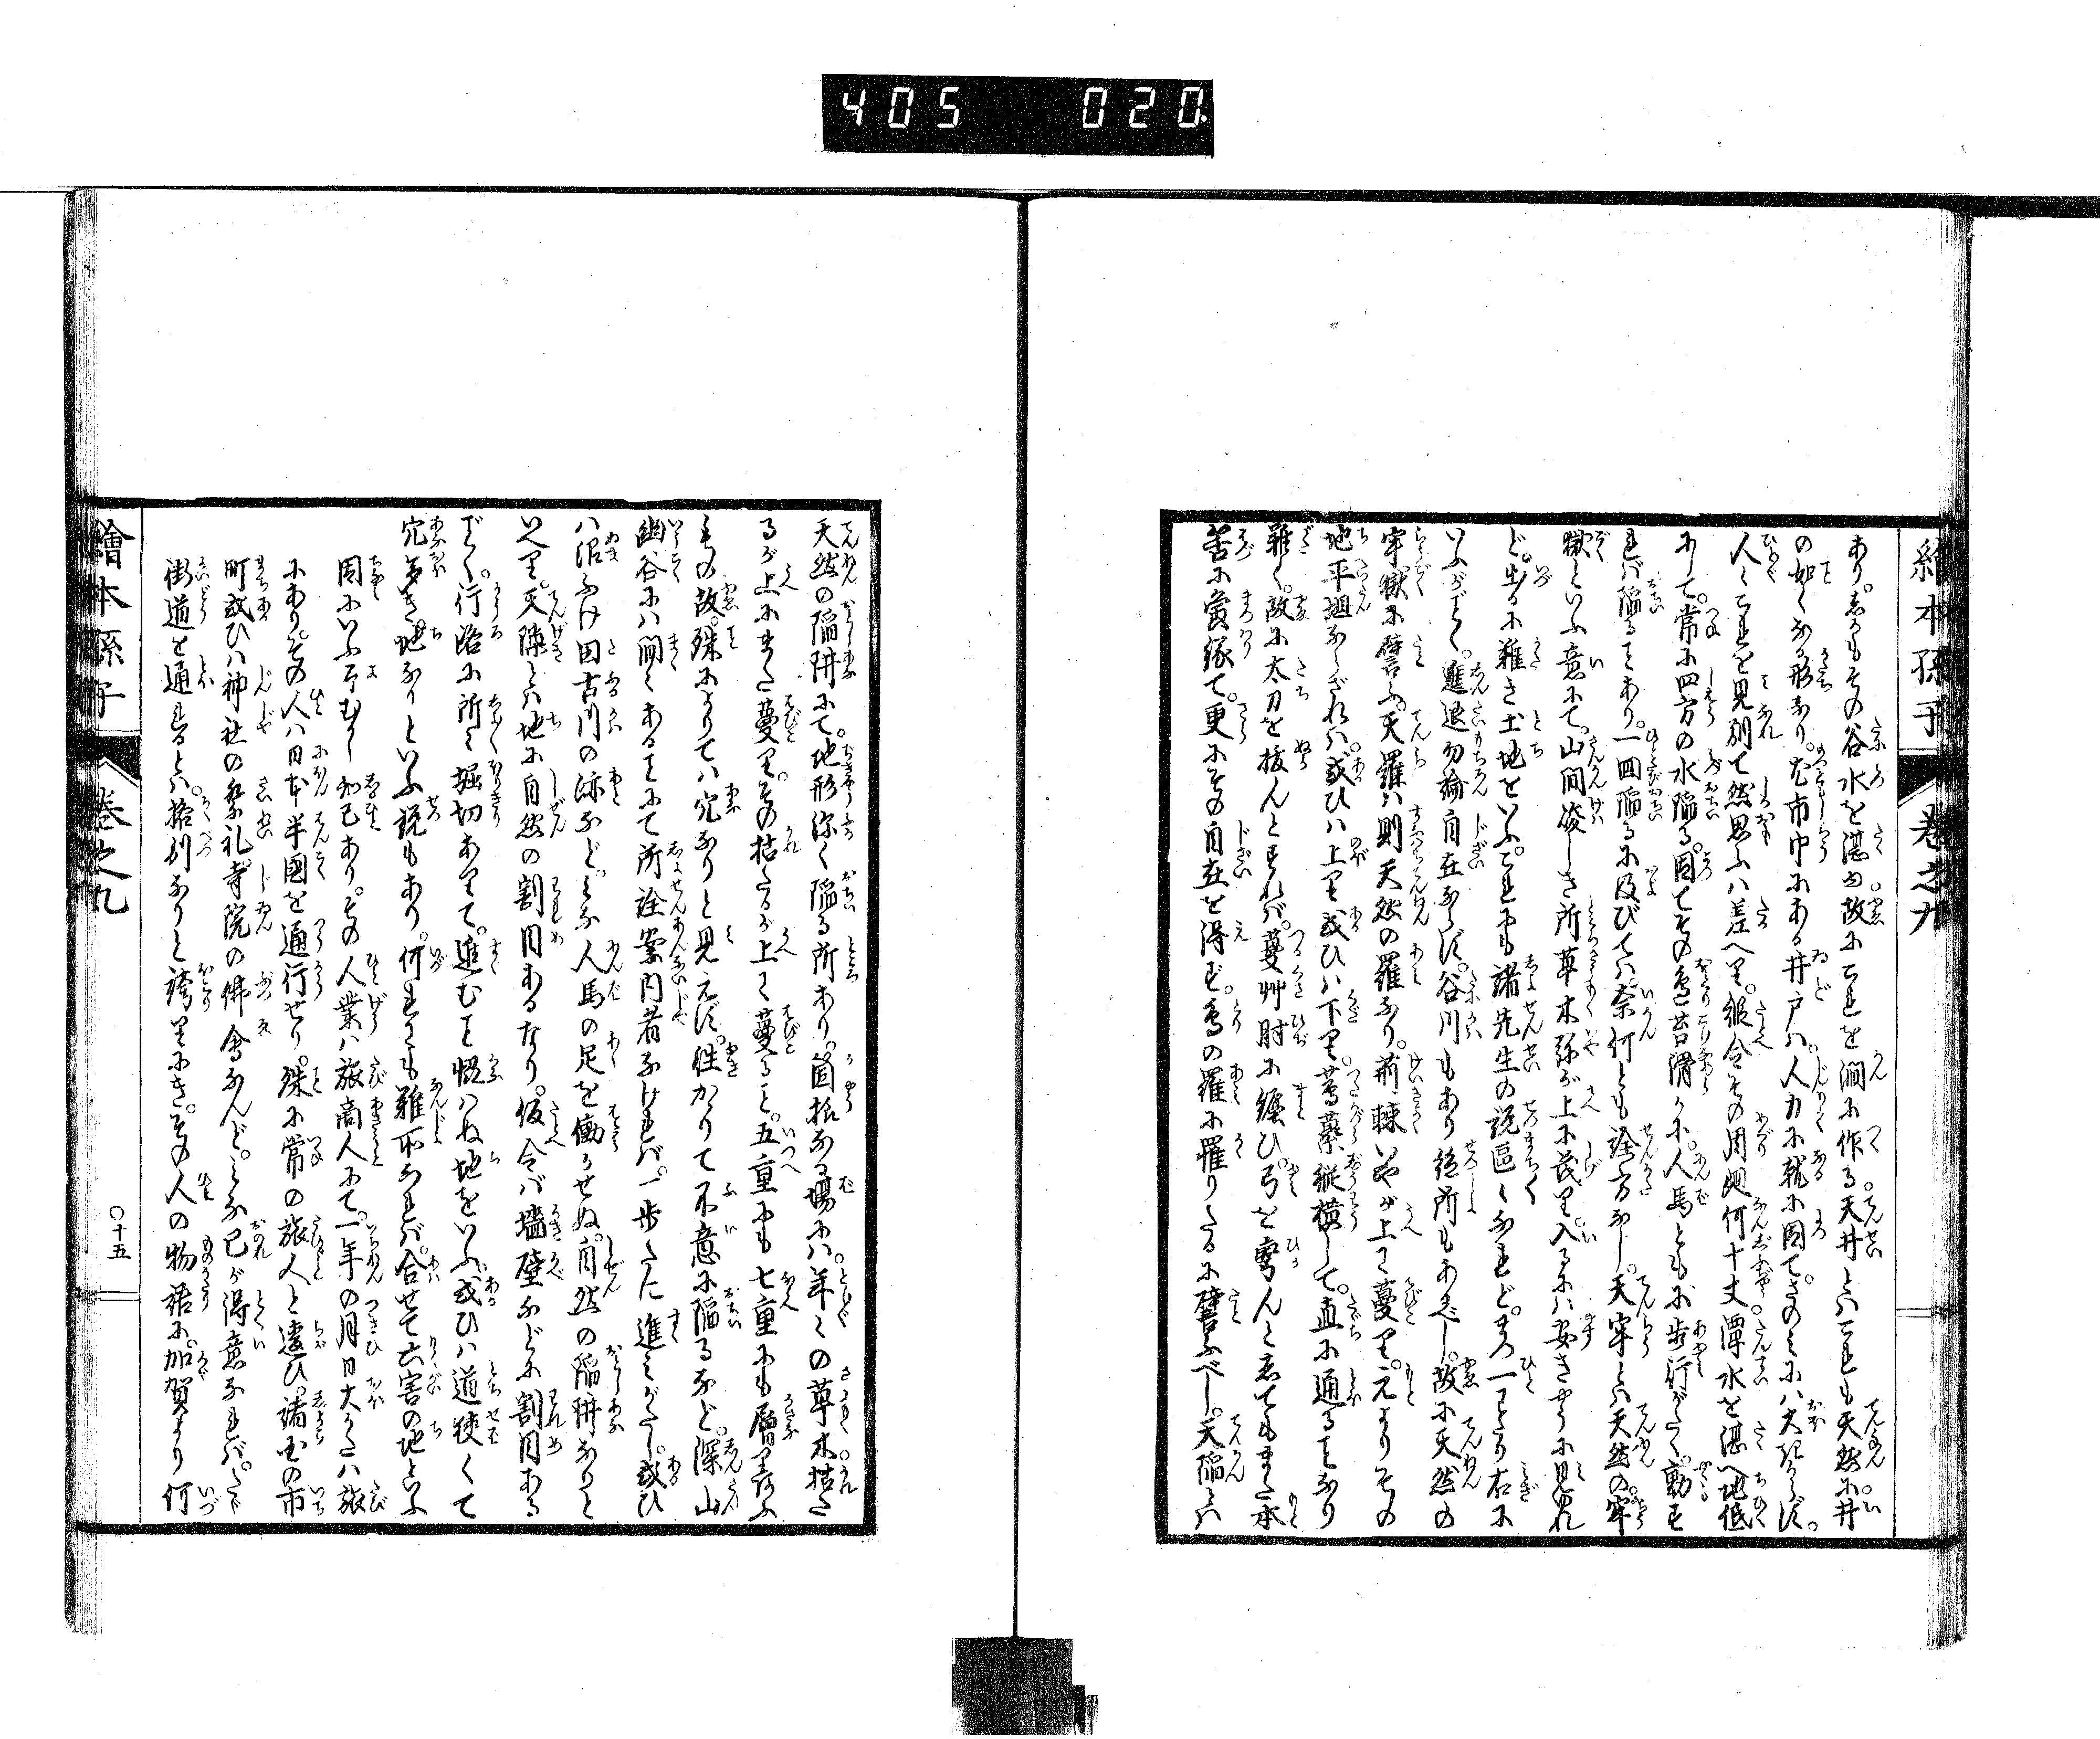 405 020
繪本孫子 卷之九
あり。しかもその谷水を湛ゆ。故にこれを澗に作る。天井とはこれも天然に井
の如くなる形なり。尤市中にある井戸は。人力に就に因て。さのミには大ならず。
人々これを見別て然思ふは差へり。縦令その周廻何十丈潭水を湛へ地低
にして。常に四方の水陥る。因てその邉苔滑かに。人馬ともに歩行がたく。動も
れば陥ることあり。一回陥るに及びては。奈何とも詮方なし。天牢とは天然の牢
獄といふ意にて。山間峻しき所草木弥が上に茂り。入るには安きやうに見ゆれ
ど。出るに難き土地をいふ。これにも諸先生の説區々なれど。まづ一とわたり右に
いふがごとく。進退勿論自在ならず。谷川もあり絶所もあるべし。故に天然の
牢獄に譬ふ。天羅は則天然の羅なり。荊棘いやが上に蔓り。元よりその
地平坦ならざれば。或ひは上り或ひは下り。蔦蘽縦横して。直に通ることなり
難く。故に太刀を抜んとすれば。蔓艸肘に纏ひ。弓を弯んとしてもまた本
筈に夤縁て。更にその自在を得ず。鳥の羅に罹りたるに譬ふべし。天陥とは
天然の陥穽にて。地形深く陥る所あり。箇様なる場には。年々の草木枯た
るが上にまた蔓り。その枯たるが上へ蔓ること。五重にも七重にも層り蓊ふ
もの故。殊によりては穴なりと見えず。往かゝりて不意に陥るなど。深山
幽谷には間々あることにて所詮案内者なければ。一歩だに進ミがたし。或ひ
は沼ふけ田古川の跡など。ミな人馬の足を働かせぬ。自然の陥穽なりと
いへり。天隙とは地に自然の割目あるなり。仮令ば墻壁などに割目ある
ごとく。行路に所々堀切ありて。進むこと叶はぬ地をいふ。或ひは道狭くて
穴多き地なりといふ説もあり。何れにも難所なれば。合せて六害の地といふ
因にいふむかし知己あり。その人業は旅商人にて。一年の月日大かたは旅
にあり。その人は日本半國を通行せり。殊に常の旅人と違ひ。諸国の市
町或ひは神社の祭礼。寺院の佛會なんど。ミな己が得意なれば。たゞ
街道を通るとは。格別なりと誇りにき。その人の物語に。加賀より何
繪本孫子 卷之九 〇十五